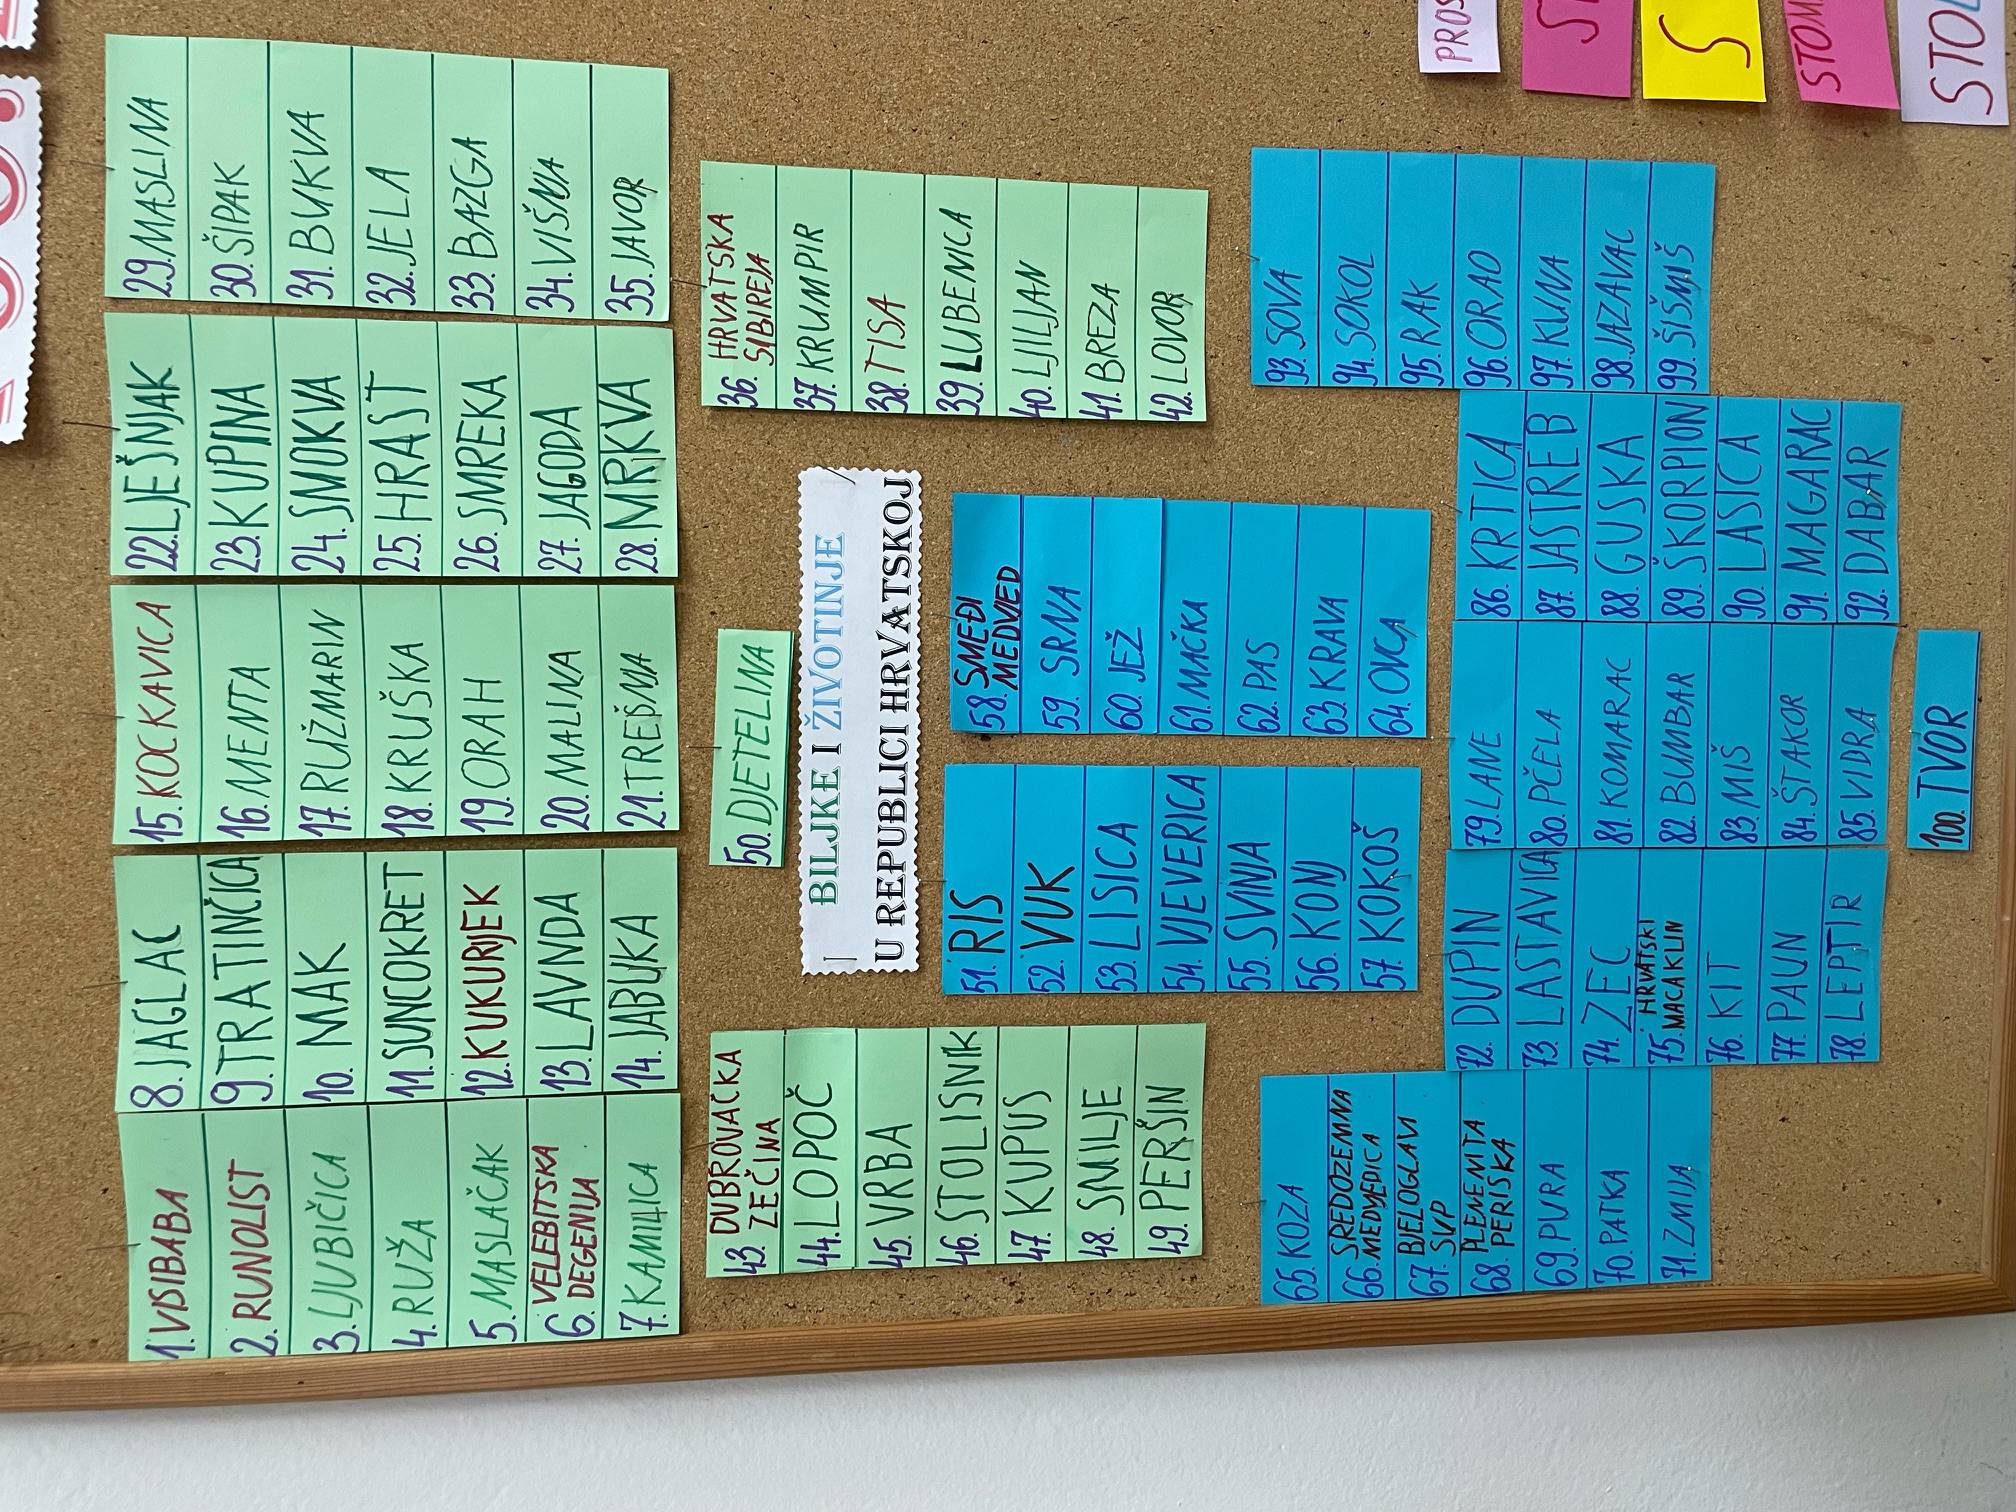 1. VISIBABA
2. RUNOLIST
3. LJUBIČICA
4. RUŽA
5. MASLAČAK
6. VELEBITSKA
DEGENIJA
7. KAMILICA
8. JAGLAC
9. TRATINČICA
10. MAK
11. SUNCOKRET
12. KUKURIJEK
13. LAVNDA
14. JABUKA
15. KOCKAVICA
16. MENTA
17. RUŽMARIN
18. KRUŠKA
19. ORAH
20. MALINA
21. TREŠNJA
22. LJEŠNJAK
23. KUPINA
24. SMOKVA
25. HRAST
26. SMREKA
27. JAGODA
28. MRKVA
29. MASLINA
30. ŠIPAK
31. BUKVA
32. JELA
33. BAZGA
34. VIŠNJA
35. JAVOR
43. DUBROVAČKA
ZEČINA
44. LOPOČ
45. VRBA
46. STOLISNIK
47. KUPUS
48. SMILJE
49. PERŠIN
50. DJETELINA
BILJKE I ŽIVOTINJE
U REPUBLICI HRVATSKOJ
36. HRVATSKA
SIBIREJA
37. KRUMPIR
38. TISA
39. LUBENICA
40. LJILJAN
41. BREZA
42. LOVOR
51. RIS
52. VUK
53. LISICA
54. VJEVERICA
55. SVINJA
56. KONJ
57. KOKOŠ
58. SMEĐI
MEDVJED
59. SRNA
60. JEŽ
61. MAČKA
62. PAS
63. KRAVA
64. OVCA
65. KOZA
66. SREDOZEMNA
MEDVJEDICA
67. BJELOGLAVI
SUP
68. PLEMENITA
PERISKA
69. PURA
70. PATKA
71. ZMIJA
72. DUPIN
73. LASTAVICA
74. ZEC
75. HRVATSKI
MACAKLIN
76. KIT
77. PAUN
78. LEPTIR
79. LANE
80. PČELA
81. KOMARAC
82. BUMBAR
83. MIŠ
84. ŠTAKOR
85. VIDRA
86. KRTICA
87. JASTREB
88. GUSKA
89. ŠKORPION
90. LASICA
91. MAGARAC
92. DABAR
93. SOVA
94. SOKOL
95. RAK
96. ORAO
97. KUNA
98. JAZAVAC
99. ŠIŠMIŠ
100. TVOR
PROS
S
STOM
STOL